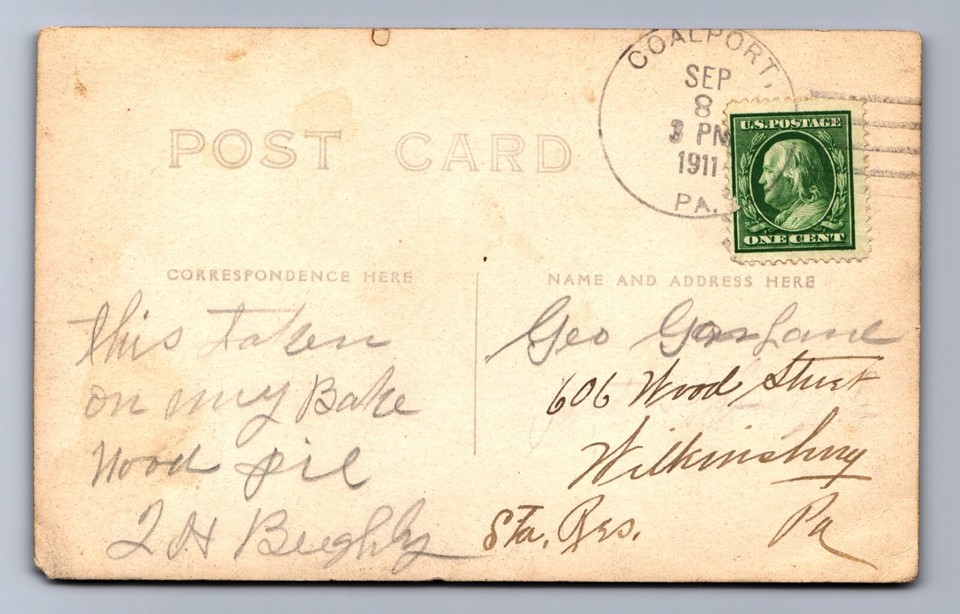 COALPORT,
SEP
8
3 PM
1911
PA.
U.S. POSTAGE
ONE CENT
POST CARD
CORRESPONDENCE HERE
NAME AND ADDRESS HERE
this taken
on my Bake
Wood pil
Geo
606 Wood Street
Wilkinsburg
Sta. Pa